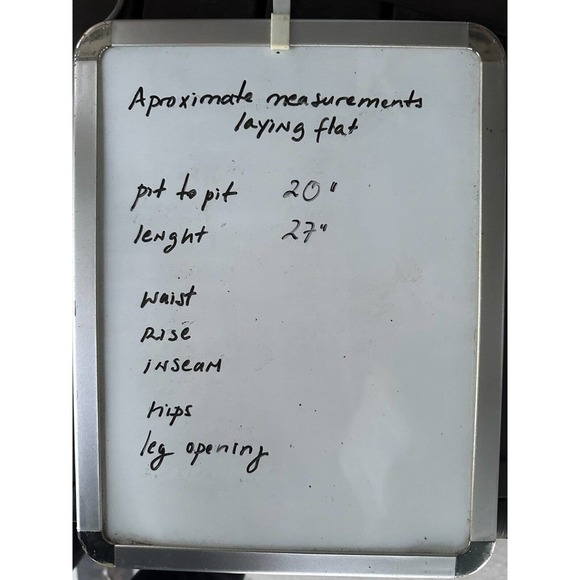 Aproximate measurements
laying flat
pit to pit 20"
lenght 27"
waist
Rise
inseam
hips
leg opening